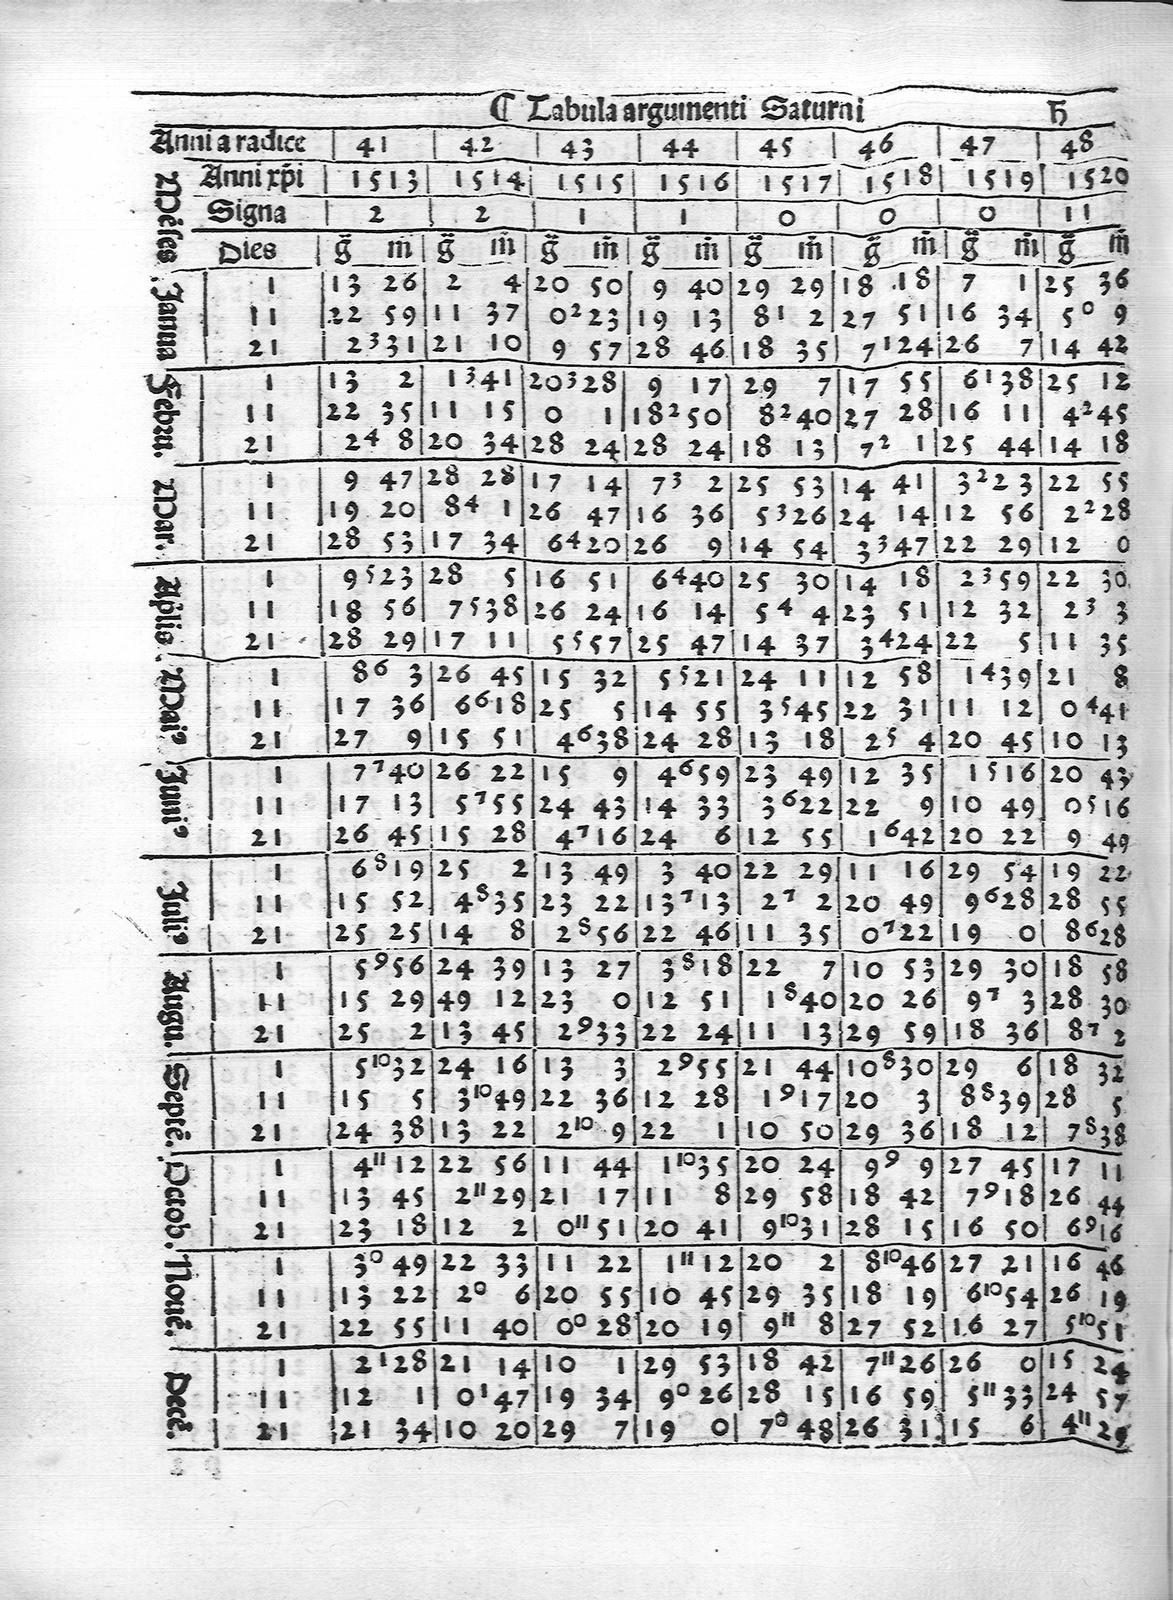 ¶ Tabula argumenti Saturni ♄
Anni a radice | 41 | 42 | 43 | 44 | 45 | 46 | 47 | 48
Anni xp̄i | 1513 | 1514 | 1515 | 1516 | 1517 | 1518 | 1519 | 1520
Signa | 2 | 2 | 1 | 1 | 0 | 0 | 0 | 11
Mēses. Dies | g̈ m̄ | g̈ m̄ | g̈ m̄ | g̈ m̄ | g̈ m̄ | g̈ m̄ | g̈ m̄ | g̈ m̄
Janua 1 | 13 26 | 2 4 | 20 50 | 9 40 | 29 29 | 18 18 | 7 1 | 25 36
11 | 22 59 | 11 37 | 0 ² 23 | 19 13 | 8 ¹ 2 | 27 51 | 16 34 | 5 ⁰ 9
21 | 2 ³ 31 | 21 10 | 9 57 | 28 46 | 18 35 | 7 ¹ 24 | 26 7 | 14 42
Febru. 1 | 13 2 | 1 ³ 41 | 20 ³ 28 | 9 17 | 29 7 | 17 55 | 6 ¹ 38 | 25 12
11 | 22 35 | 11 15 | 0 1 | 18 ² 50 | 8 ² 40 | 27 28 | 16 11 | 4 ² 45
21 | 2 ⁴ 8 | 20 34 | 28 24 | 28 24 | 18 13 | 7 ² 1 | 25 44 | 14 18
Mar. 1 | 9 47 | 28 28 | 17 14 | 7 ³ 2 | 25 53 | 14 41 | 3 ² 23 | 22 55
11 | 19 20 | 8 ⁴ 1 | 26 47 | 16 36 | 5 ³ 26 | 24 14 | 12 56 | 2 ² 28
21 | 28 53 | 17 34 | 6 ⁴ 20 | 26 9 | 14 54 | 3 ³ 47 | 22 29 | 12 0
Aplis. 1 | 9 ⁵ 23 | 28 5 | 16 51 | 6 ⁴ 40 | 25 30 | 14 18 | 2 ³ 59 | 22 30
11 | 18 56 | 7 ⁵ 38 | 26 24 | 16 14 | 5 ⁴ 4 | 23 51 | 12 32 | 2 ³ 3
21 | 28 29 | 17 11 | 5 ⁵ 57 | 25 47 | 14 37 | 3 ⁴ 24 | 22 5 | 11 35
Maiꝰ 1 | 8 ⁶ 3 | 26 45 | 15 32 | 5 ⁵ 21 | 24 11 | 12 58 | 1 ⁴ 39 | 21 8
11 | 17 36 | 6 ⁶ 18 | 25 5 | 14 55 | 3 ⁵ 45 | 22 31 | 11 12 | 0 ⁴ 41
21 | 27 9 | 15 51 | 4 ⁶ 38 | 24 28 | 13 18 | 2 ⁵ 4 | 20 45 | 10 13
Juniꝰ 1 | 7 ⁷ 40 | 26 22 | 15 9 | 4 ⁶ 59 | 23 49 | 12 35 | 1 ⁵ 16 | 20 43
11 | 17 13 | 5 ⁷ 55 | 24 43 | 14 33 | 3 ⁶ 22 | 22 9 | 10 49 | 0 ⁵ 16
21 | 26 45 | 15 28 | 4 ⁷ 16 | 24 6 | 12 55 | 1 ⁶ 42 | 20 22 | 9 49
Juliꝰ 1 | 6 ⁸ 19 | 25 2 | 13 49 | 3 40 | 22 29 | 11 16 | 29 54 | 19 22
11 | 15 52 | 4 ⁸ 35 | 23 22 | 13 ⁷ 13 | 2 ⁷ 2 | 20 49 | 9 ⁶ 28 | 28 55
21 | 25 25 | 14 8 | 2 ⁸ 56 | 22 46 | 11 35 | 0 ⁷ 22 | 19 0 | 8 ⁶ 28
Augu. 1 | 5 ⁹ 56 | 24 39 | 13 27 | 3 ⁸ 18 | 22 7 | 10 53 | 29 30 | 18 58
11 | 15 29 | 49 12 | 23 0 | 12 51 | 1 ⁸ 40 | 20 26 | 9 ⁷ 3 | 28 30
21 | 25 2 | 13 45 | 2 ⁹ 33 | 22 24 | 11 13 | 29 59 | 18 36 | 8 ⁷ 2
Septē. 1 | 5 ¹⁰ 32 | 24 16 | 13 3 | 2 ⁹ 55 | 21 44 | 10 ⁸ 30 | 29 6 | 18 32
11 | 15 5 | 3 ¹⁰ 49 | 22 36 | 12 28 | 1 ⁹ 17 | 20 3 | 8 ⁸ 39 | 28 5
21 | 24 38 | 13 22 | 2 ¹⁰ 9 | 22 1 | 10 50 | 29 36 | 18 12 | 7 ⁸ 38
Octob. 1 | 4 ¹¹ 12 | 22 56 | 11 44 | 1 ¹⁰ 35 | 20 24 | 9 ⁹ 9 | 27 45 | 17 11
11 | 13 45 | 2 ¹¹ 29 | 21 17 | 11 8 | 29 58 | 18 42 | 7 ⁹ 18 | 26 44
21 | 23 18 | 12 2 | 0 ¹¹ 51 | 20 41 | 9 ¹⁰ 31 | 28 15 | 16 50 | 6 ⁹ 16
Nouē. 1 | 3 ⁰ 49 | 22 33 | 11 22 | 1 ¹¹ 12 | 20 2 | 8 ¹⁰ 46 | 27 21 | 16 46
11 | 13 22 | 2 ⁰ 6 | 20 55 | 10 45 | 29 35 | 18 19 | 6 ¹⁰ 54 | 26 19
21 | 22 55 | 11 40 | 0 ⁰ 28 | 20 19 | 9 ¹¹ 8 | 27 52 | 16 27 | 5 ¹⁰ 51
Decē. 1 | 2 ¹ 28 | 21 14 | 10 1 | 29 53 | 18 42 | 7 ¹¹ 26 | 26 0 | 15 24
11 | 12 1 | 0 ¹ 47 | 19 34 | 9 ⁰ 26 | 28 15 | 16 59 | 5 ¹¹ 33 | 24 57
21 | 21 34 | 10 20 | 29 7 | 19 0 | 7 ⁰ 48 | 26 31 | 15 6 | 4 ¹¹ 29